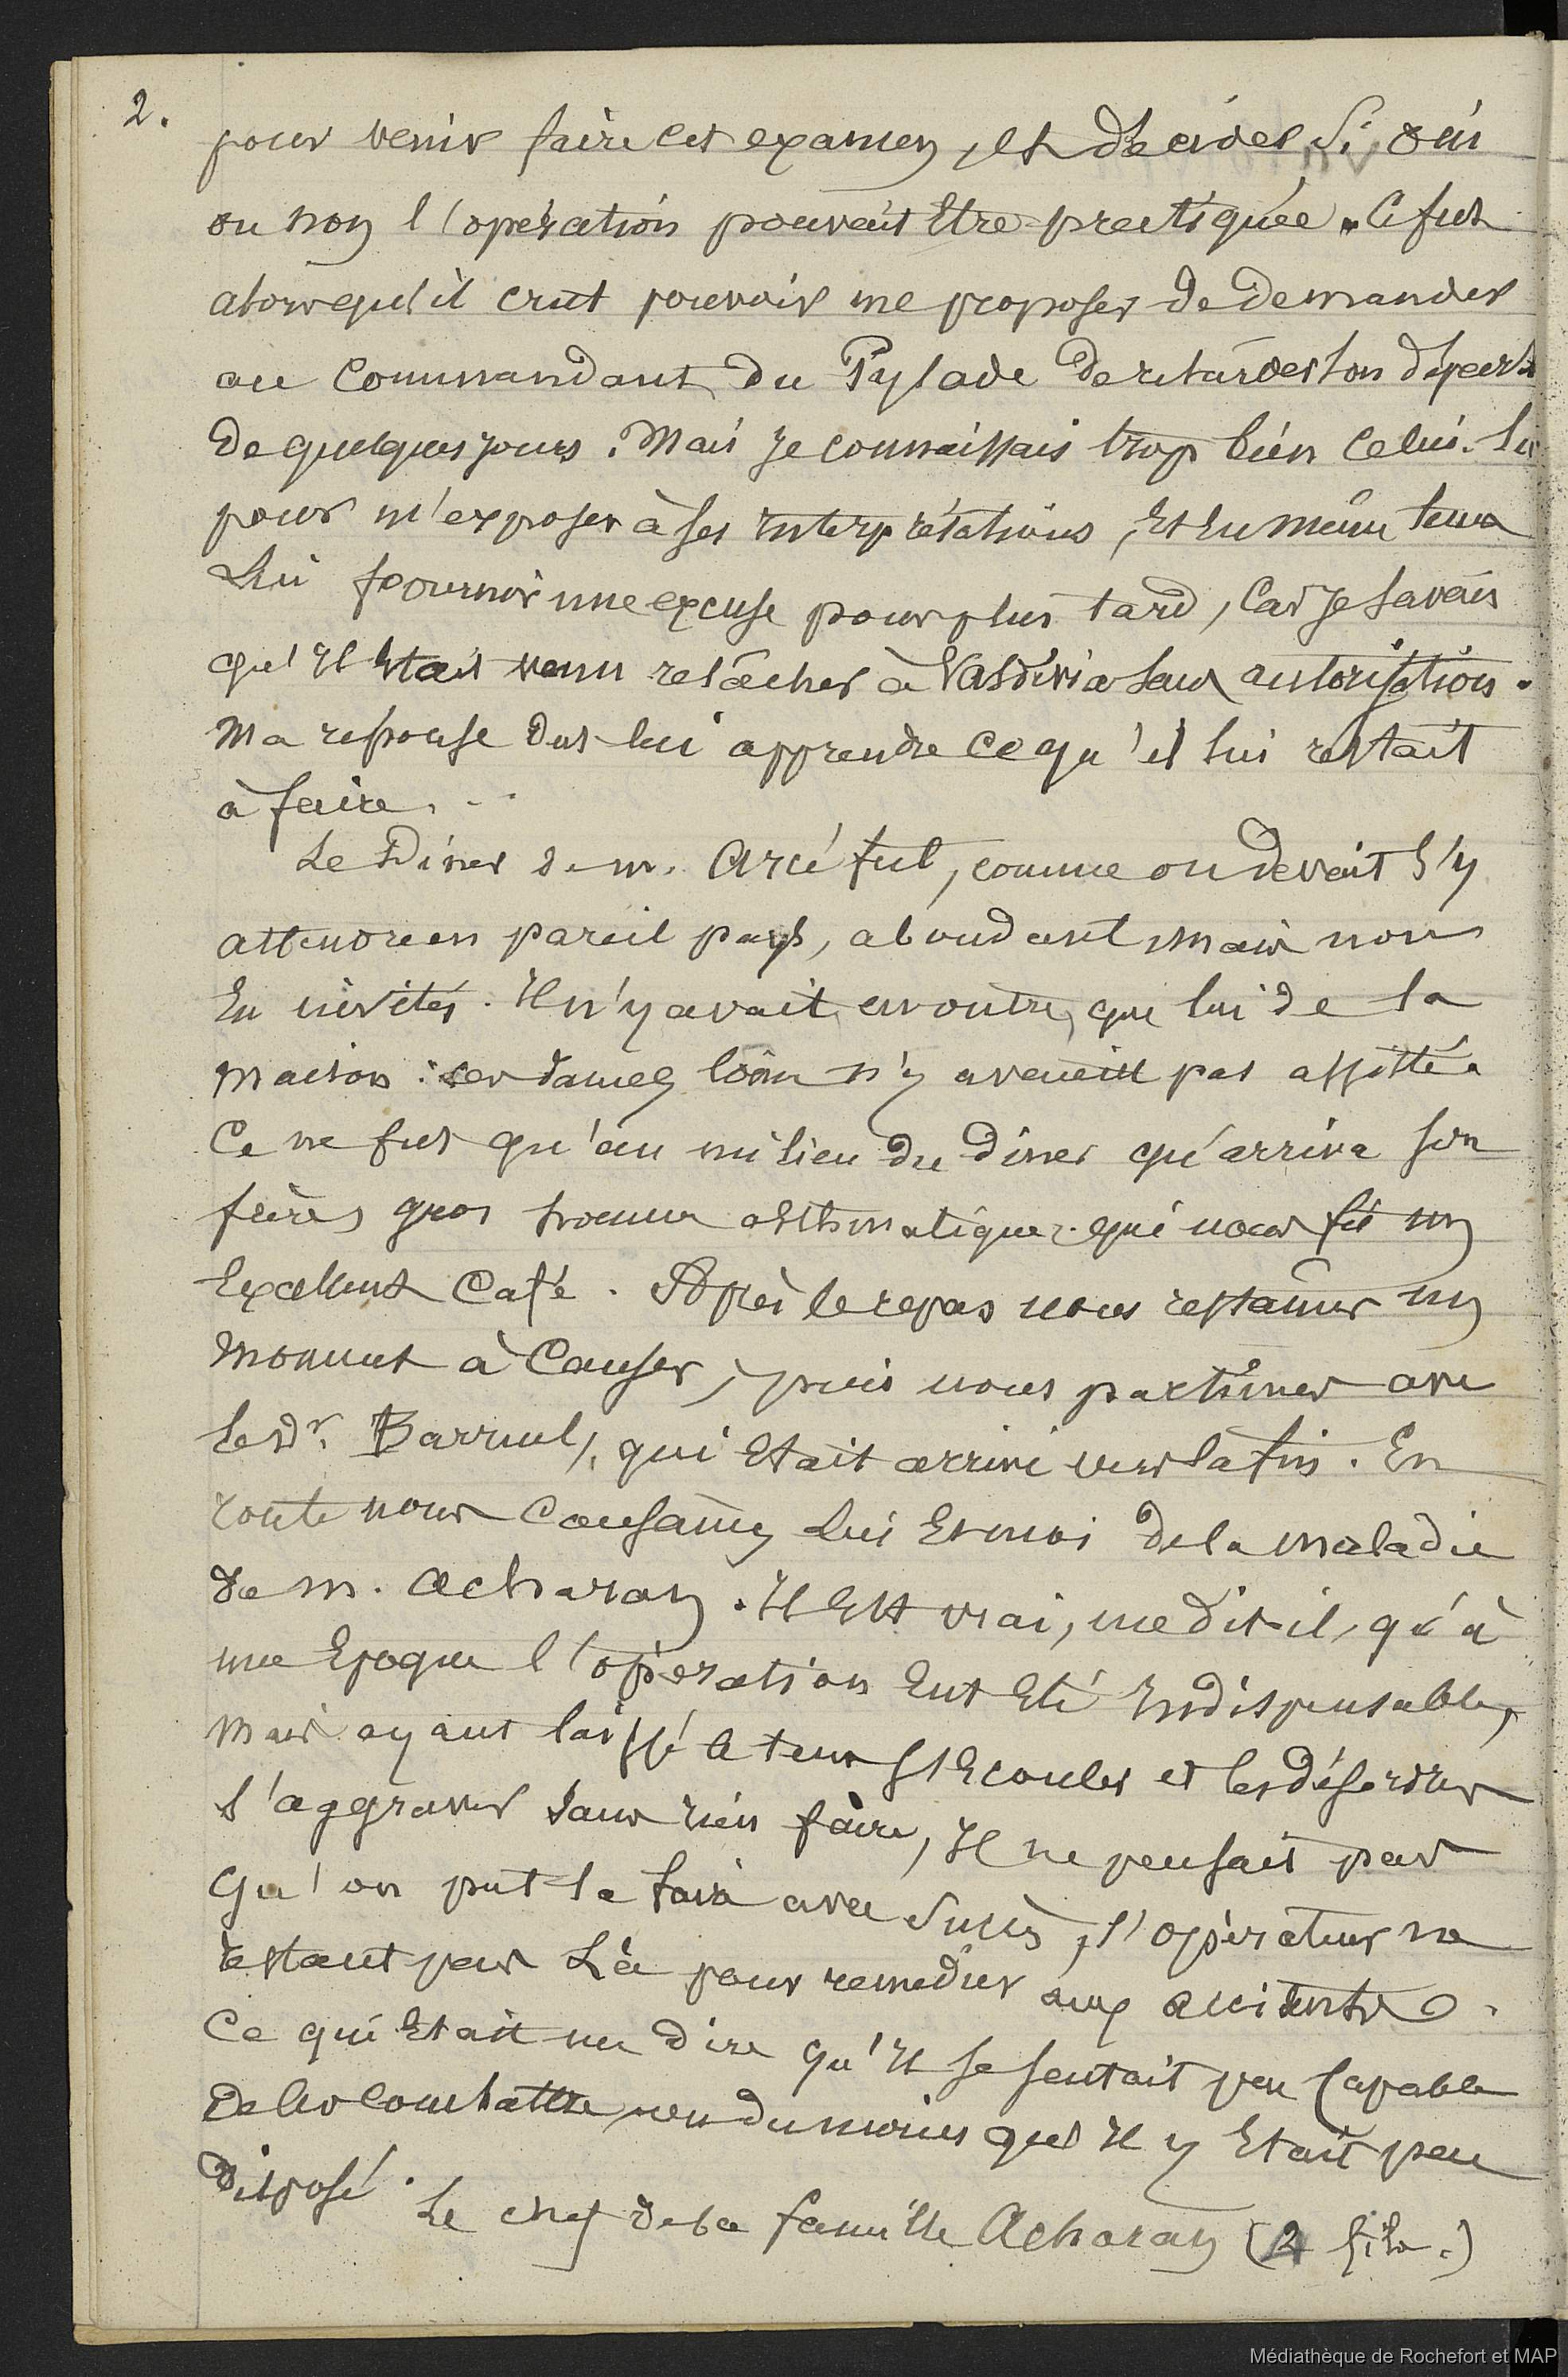 2.
pour venir faire cet examen, et décider si oui
ou non l'opération pouvait être pratiquée. Ce fut
alors qu'il crut pouvoir me proposer de demander
au Commandant du Pylade de retarder son départ
de quelques jours. Mais je connaissais trop bien celui-là
pour m'exposer à ses interprétations, et en même tems
lui fournir une excuse pour plus tard, car je savais
qu'il était venu relâcher à Valdivia sans autorisation.
Ma réponse dut lui apprendre ce qu'il lui restait
à faire. ..
Le diner de m. Arcé fut, comme on devait s'y
attendre en pareil pays, abondant mais non
en invités. Il n'y avait en outre, que lui de la
maison : ses dames n'y avaient pas assisté.
Ce ne fut qu'au milieu du diner qu'arriva son
frère, gros homme asthmatique, qui nous fit un
excellent Café. Après le repas nous restames un
moment à causer, puis nous partimes avec
le Dr. Barruel, qui était arrivé vers la fin. En
route nous causames lui et moi de la maladie
de m. Acharan. Il est vrai, me dit-il, qu'à
une Epoque l'opération eut été indispensable,
mais ayant laissé le tems s'écouler et les désordres
s'aggraver sans rien faire, il ne pensait pas
qu'on put la faire avec succès, l'opérateur ne
restant pas là pour remedier aux accidents.
Ce qui était me dire qu'il se sentait peu capable
de les combattre, ou du moins que il y était peu
disposé. Le chef de la famille Acharan (2 fils.)
Médiathèque de Rochefort et MAP